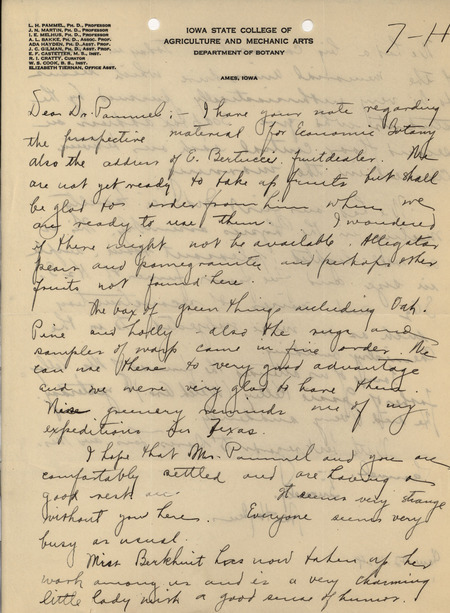 L. H. PAMMEL, PH. D., PROFESSOR
J. N. MARTIN, PH. D., PROFESSOR
I. E. MELHUS, PH. D., PROFESSOR
A. L. BAKKE, PH. D., ASSOC. PROF.
ADA HAYDEN, PH. D., ASST. PROF.
J. C. GILMAN, PH. D., ASST. PROF.
E. F. CASTETTER, M. S., INST.
R. I. CRATTY, CURATOR
W. S. COOK, B. S., INST.
ELIZABETH TIERNAN, OFFICE ASST.
IOWA STATE COLLEGE OF
AGRICULTURE AND MECHANIC ARTS
DEPARTMENT OF BOTANY
AMES, IOWA
Dear Dr. Pammel; - I have your note regarding
the prospective material for Economic Botany
also the address of E. Bertucci, fruitdealer. We
are not yet ready to take up fruits but shall
be glad to order from him when we
are ready to use them. I wondered
if there might not be available Alligator
pears and pomegranites and perhaps other
fruits not found here.
The box of green things including Oak,
Pine and holly also the sugar and
samples of came in fine order. We
can use these to very good advantage
and we were very glad to have them.
greenery reminds me of my
expeditions in Texas.
I hope that Mrs. Pammel and you are
comfortably settled and are having a
good rest It seems very strange
without you here. Everyone seems very
busy as usual.
Miss has now taken up her
work among us and is a very charming
little lady with a good sense of humor.